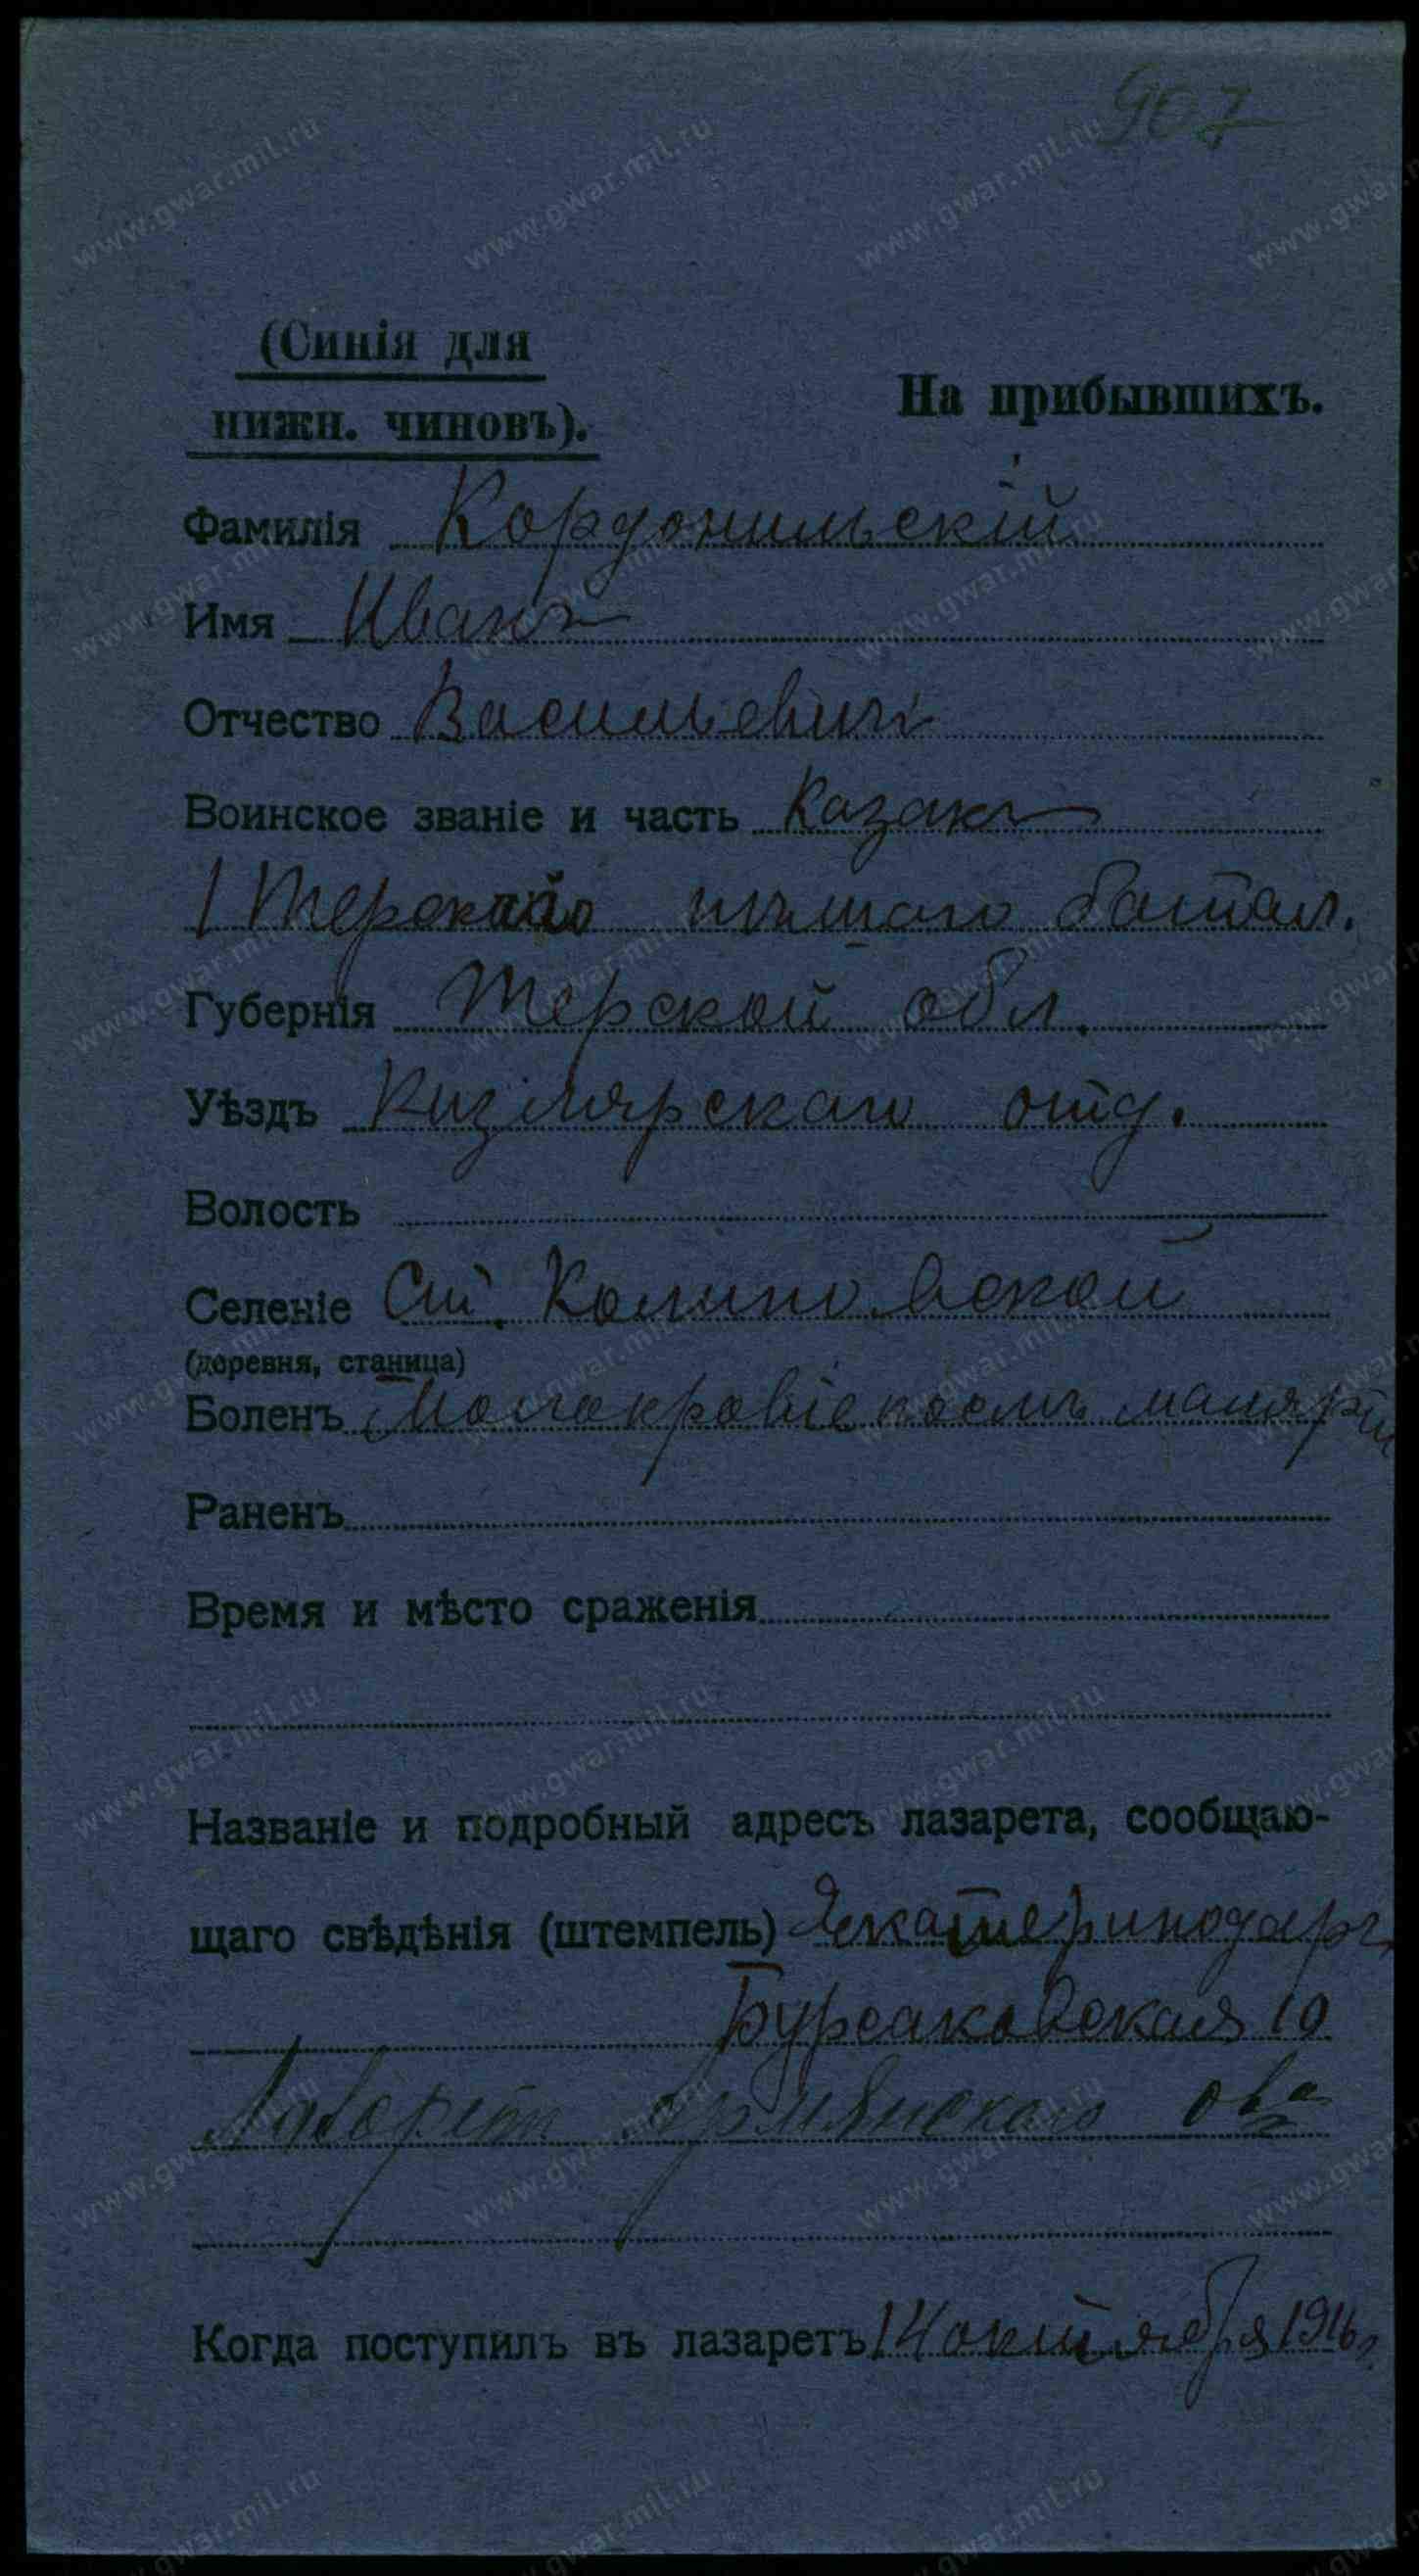 907
(Синія для
нижн. чиновъ).
На прибывшихъ.
Фамилія Кордонильскій
Имя Иванъ
Отчество Васильевичъ
Воинское званіе и часть Казакъ
1 Терскаго пѣшаго батал.
Губернія Терской обл.
Уѣздъ Кизлярскаго отд.
Волость
Селеніе Ст. Калиновской
(деревня, станица)
Боленъ Малокровіе послѣ маляріи
Раненъ
Время и мѣсто сраженія
Названіе и подробный адресъ лазарета, сообщаю-
щаго свѣдѣнія (штемпель) Екатеринодаръ
Бурсаковская 10
Лазаретъ армянскаго о-ва
Когда поступилъ въ лазаретъ 14 октября 1916 г.
www.gwar.mil.ru